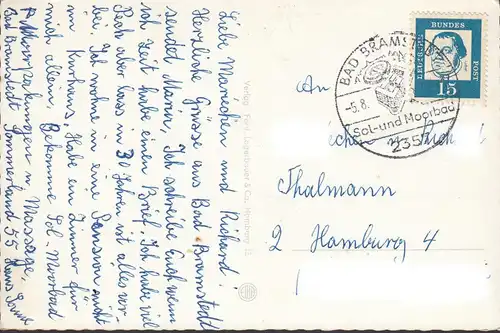 Liebe Mariechen und Richard!
Herzliche Grüsse aus Bad-Bramstedt
sendet Maria, Ich schreibe Euch wenn
ich Zeit habe einen Brief. Ich habe viel
Pech aber lass in 30 Jahren ist alles vor-
bei. Ich wohne in eine Pension nicht
im Kurhaus, Habe ein Zimmer für
mich allein, Bekomme Sol-Moorbad
Moorpackungen u. Massage,
Bad Bramstedt Sommerland 55 Haus
Verlag Ferd. Lagerbauer & Co., Hamburg
BAD BRAMSTEDT
-5.8.
Sol- und Moorbad
235
DEUTSCHE
BUNDES
POST
15
An
Thalmann
2 Hamburg 4